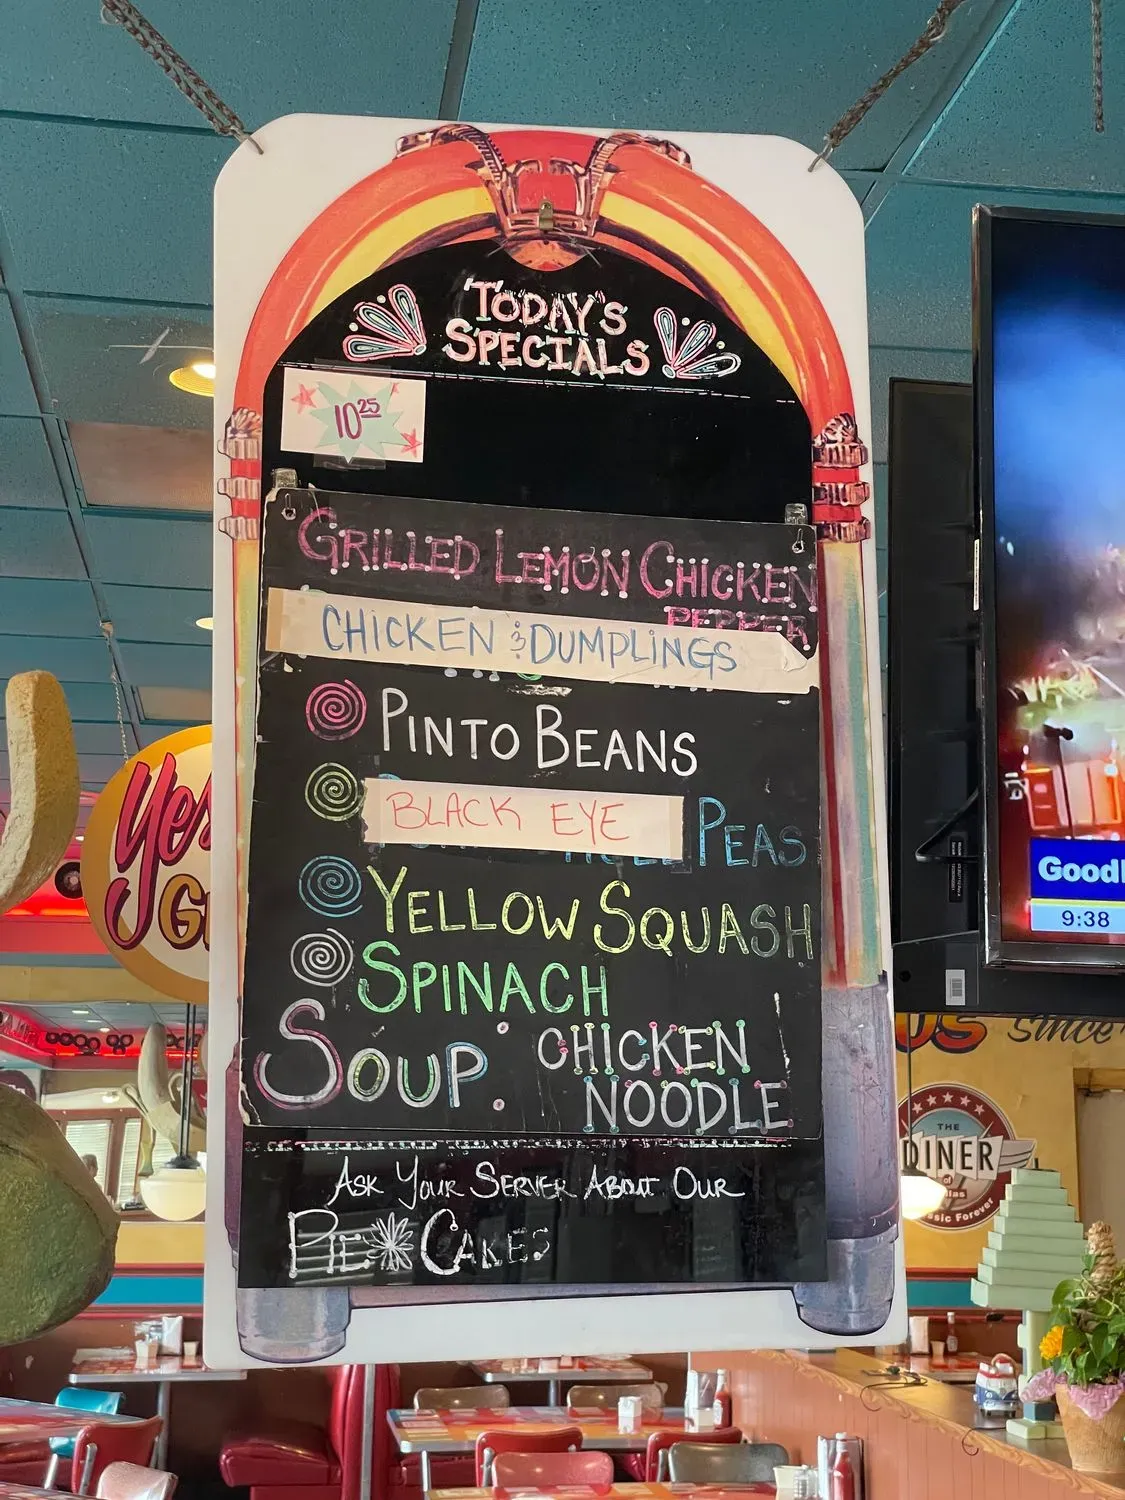 TODAY'S
SPECIALS
10.25
GRILLED LEMON CHICKEN
PEPPER
CHICKEN & DUMPLINGS
PINTO BEANS
BLACK EYE PEAS
YELLOW SQUASH
SPINACH
SOUP: CHICKEN
NOODLE
ASK YOUR SERVER ABOUT OUR
PIE * CAKES
Yes
Good
9:38
US since
THE
DINER
of
ssic Forever